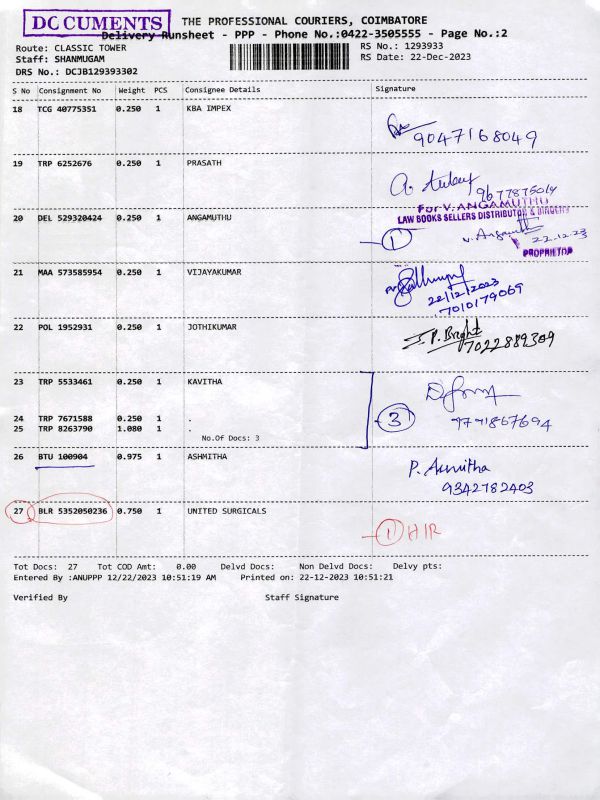 DOCUMENTS
THE PROFESSIONAL COURIERS, COIMBATORE
Delivery Runsheet - PPP - Phone No.:0422-3505555 - Page No.:2
Route: CLASSIC TOWER
RS No.: 1293933
Staff: SHANMUGAM
RS Date: 22-Dec-2023
DRS No.: DCJB129393302
S No Consignment No Weight PCS Consignee Details Signature
18 TCG 40775351 0.250 1 KBA IMPEX
9047168049
19 TRP 6252676 0.250 1 PRASATH
9677875014
For V. ANGAMUTHU
LAW BOOKS SELLERS DISTRIBUTOR & BINDERS
20 DEL 529320424 0.250 1 ANGAMUTHU
1
V. Angamuth
22.12.23
PROPRIETOR
21 MAA 573585954 0.250 1 VIJAYAKUMAR
22/12/2023
7010179069
22 POL 1952931 0.250 1 JOTHIKUMAR
J. P. Bright
7022889309
23 TRP 5533461 0.250 1 KAVITHA
24 TRP 7671588 0.250 1 .
3
25 TRP 8263790 1.080 1 .
No.Of Docs: 3
26 BTU 100904 0.975 1 ASHMITHA
P. Asmitha
9342782403
27 BLR 5352050236 0.750 1 UNITED SURGICALS
1 HIR
Tot Docs: 27 Tot COD Amt: 0.00 Delvd Docs: Non Delvd Docs: Delvy pts:
Entered By :ANUPPP 12/22/2023 10:51:19 AM Printed on: 22-12-2023 10:51:21
Verified By Staff Signature